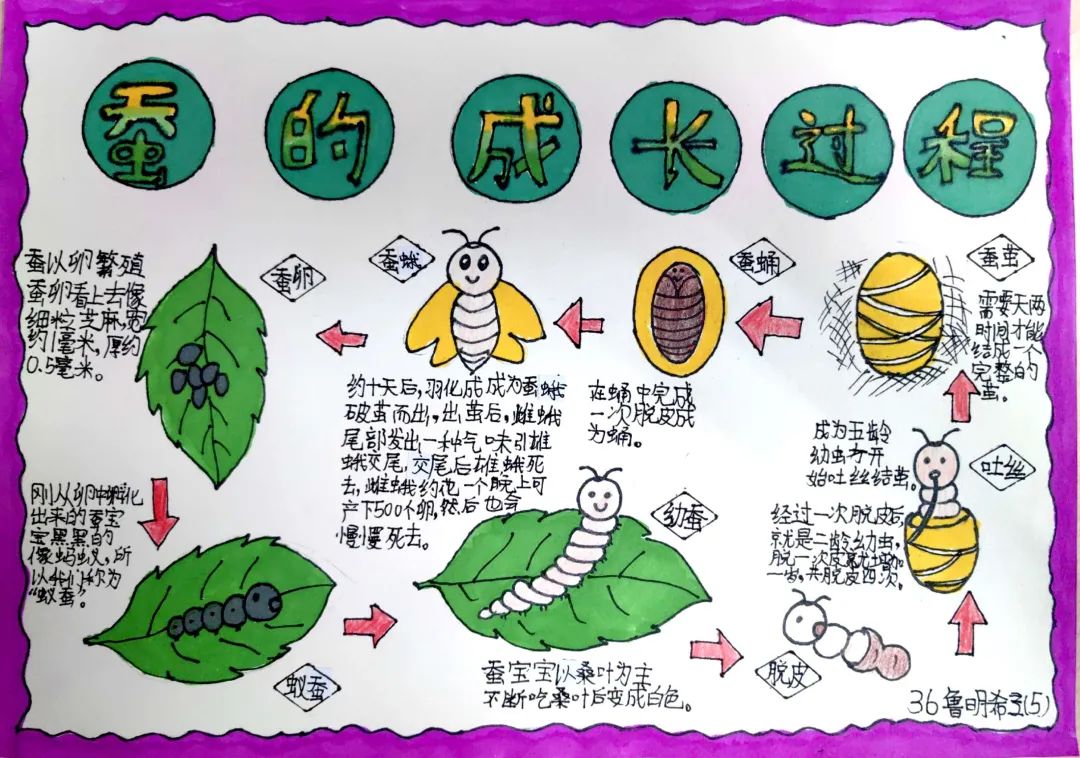 蚕的成长过程
蚕卵
蚕以卵繁殖
蚕卵看上去像
细粒芝麻,宽
约1毫米,厚约
0.5毫米。
刚从卵中孵化
出来的蚕宝
宝黑黑的
像蚂蚁,所
以我们称为
“蚁蚕”。
蚁蚕
幼蚕
蚕宝宝以桑叶为主
不断吃桑叶后变成白色。
脱皮
经过一次脱皮后,
就是二龄幼虫,
脱一次皮就增加
一岁,共脱皮四次。
吐丝
成为五龄
幼虫才开
始吐丝结茧。
蚕茧
需要天两
时间才能
结成一个
完整的
茧。
蚕蛹
在蛹中完成
一次脱皮成
为蛹。
蚕蛾
约十天后,羽化成成为蚕蛾
破茧而出,出茧后,雌蛾
尾部发出一种气味引雄
蛾交尾,交尾后雄蛾死
去,雌蛾约花一个晚上可
产下500个卵,然后也会
慢慢死去。
36鲁明希 (5)